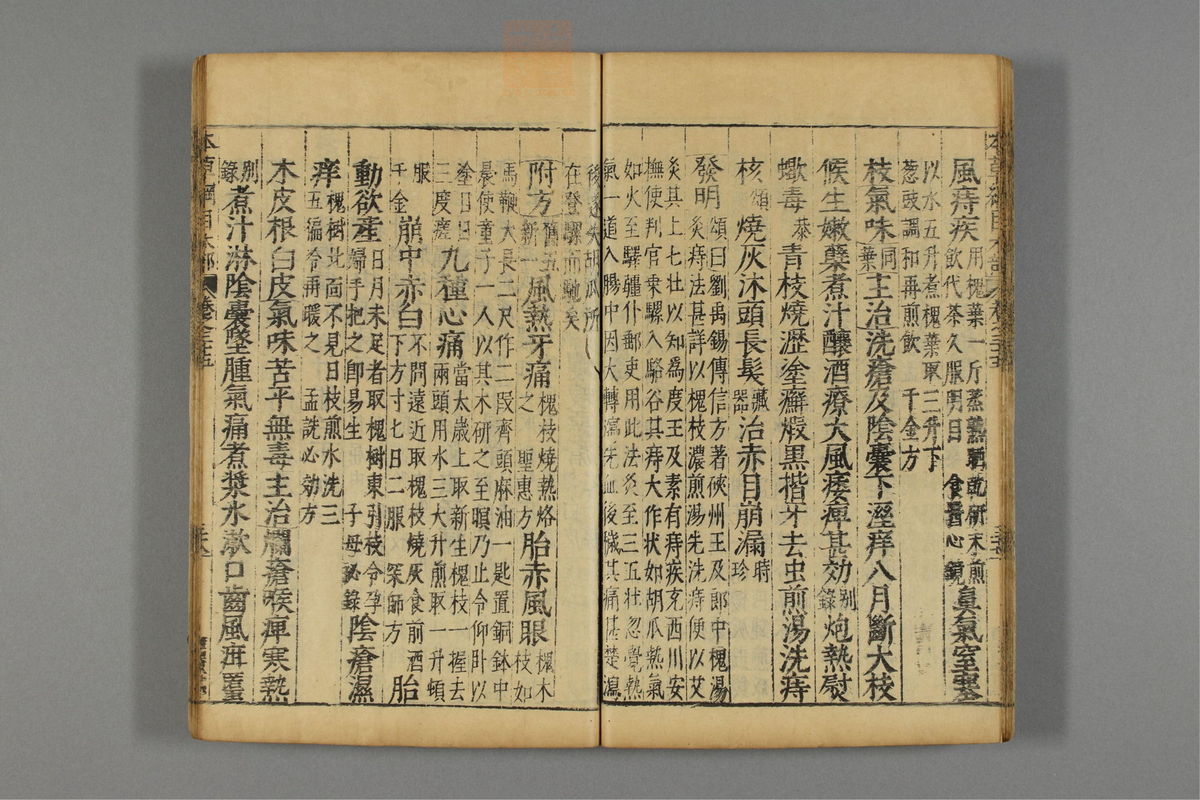 風痔疾
用槐葉一斤蒸熟晒乾研末煎
飲代茶久服明目 食醫心鏡
眞氣窒塞
以水五升煮槐葉取三升下
葱豉調和再煎飲 千金方
枝氣味同葉主治洗瘡及陰囊下溼痒八月斷大枝
候生嫩蘖煮汁釀酒療大風痿痺甚効別錄炮熱熨
蠍毒恭青枝燒瀝塗癬煅黒揩牙去虫煎湯洗痔
核頌燒灰沐頭長髮藏器治赤目崩漏時珍
發明
頌曰劉禹錫傳信方著硤州王及郎中槐湯
灸痔法甚詳以槐枝濃煎湯先洗痔便以艾
炙其上七壮以知爲度王及素有痔疾充西川安
撫使判官乗騾入駱谷其痔大作状如胡瓜熱氣
如火至驛疆仆郵吏用此法灸至三五壮忽覺熱
氣一道入腸中因大轉瀉先血後穢其痛甚楚瀉
後遂失胡瓜所
在登騾而馳矣
附方
舊五
新一
風熱牙痛
槐枝燒熱烙
之 聖惠方
胎赤風眼
槐木
枝如
馬鞭大長二尺作二段齊頭麻油一匙置銅鉢中
晨使童子一人以其木研之至暝乃止令仰卧以
塗日日
三度瘥
九種心痛
當太歳上取新生槐枝一握去
兩頭用水三大升煎取一升頓
服
千金
崩中赤白
不問遠近取槐枝燒灰食前酒
下方寸七日二服 深師方
胎
動欲產
日月未足者取槐樹東引枝令孕
婦手把之卽易生 子母祕錄
陰瘡濕
痒
槐樹北面不見日枝煎水洗三
五徧令再暖之 孟詵必効方
木皮根白皮氣味苦平無毒主治爛瘡喉痺寒熱
別錄煮汁淋陰囊墜腫氣痛煮漿水漱口齒風疳䘌
本草綱目木部 卷之三十五